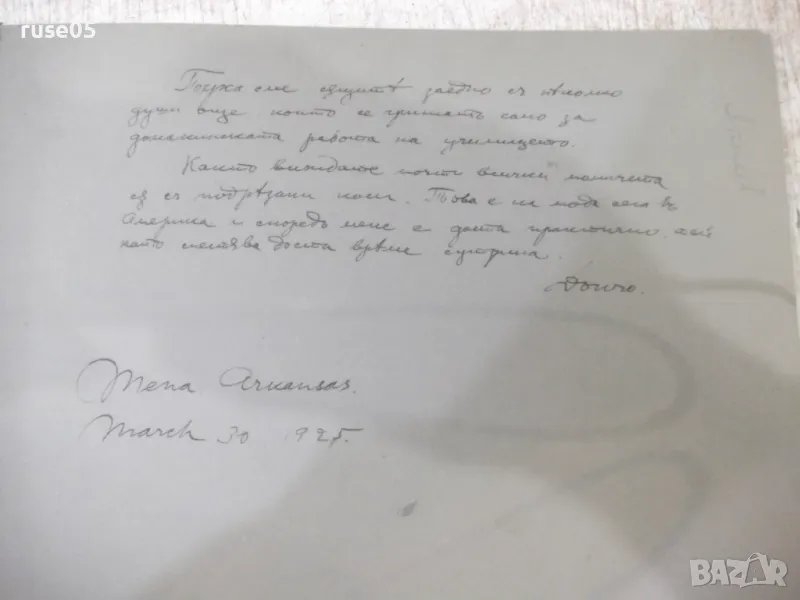 ruse05
сме същитѣ заедно съ нѣколко
души още, които се грижатъ само за
домакинската работа на училището.
Както виждате почти всички момичета
сѫ съ подрѣзани коси. Това е на мода сега въ
Америка и споредъ мене е доста практично, тъй
като спестява доста врѣме сутринь.
Дончо.
Mena Arkansas.
March 30 1925.
BAZAR